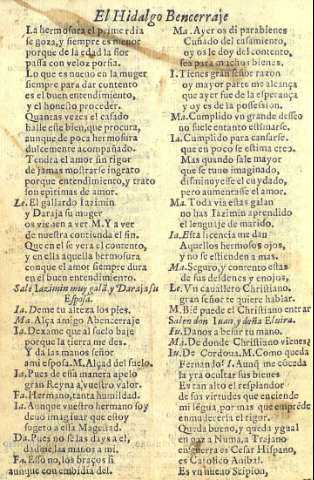 El Hidalgo Bencerraje
La hermosura el primer dia
se goza, y siempre es menor
porque de la edad la flor
passa con veloz porfia.
Lo que es nueuo en la muger
siempre para dar contento
es el buen entendimiento,
y el honesto proceder.
Quantas vezes el casado
halle esse bien, que procura,
aunque de poca hermosura
dulcemente acompañado.
Tendra el amor sin rigor
de jamas mostrarse ingrato
porque entendimiento, y trato
son epitimas de amor.
Le. El gallardo Iazimin
y Daraja su muger
os vienen a ver M. Y a ver
de nuestra contienda el fin.
Que en el se vera el contento,
y en ella aquella hermosura
conque el amor siempre dura
en el buen entendimiento.
Sale Iazimin muy galã, y Daraja su
Esposa.
Ia. Deme tu alteza los pies.
Ma. Alça amigo Abencerraje
Ia. Dexame que al suelo baje
porque la tierra me des.
Y da las manos señor
a mi esposa. M. Alçad del suelo.
Ia. Pues de essa manera apelo
gran Reyna a vuestro valor.
Fa. Hermano, tanta humildad.
Ia. Aunque vuestro hermano soy
deuo imaginar que estoy
sugeto a essa Magestad.
Da. Pues no se las days a el,
dadme las manos a mi.
Fa. Esso no, los braços si
aunque con embidia del.
Ma. Ayer os di parabienes
Cuñado del casamiento,
oy os le doy del contento,
sea para muchos bienes.
I. Tienes gran señor razon
oy mayor parte mi alcança
que ayer fue de la esperança
y oy es de la possession.
Ma. Cumplido vn grande desseo
no suele entanto estimarse.
Ia. Cumplido para cansarse.
que en poco se estima creo.
Mas quando sale mayor
que se tuuo imaginado,
disminuyesse el cuydado,
pero aumentasse el amor.
Ma. Toda via estas galan
no has Iazimin aprendido
el lenguaje de marido.
Ia. Esta licencia me dan
Aquellos hermosos ojos,
y no se estienden a mas.
Ma. Seguro, y contento estas
de sus desdenes y enojos,
Le. Vn cauallero Christiano.
gran señor te quiere hablar.
M. Biē puede el Christiano entrar
Salen don Iuan, y doña Eluira.
Iu. Danos a besar tu mano.
Ma. De donde Christiano vienes?
Iu. De Cordoua. M. Como queda
Fernando? I. Aunq̃ me exceda
la yra ocultar sus bienes
Es tan alto el resplandor
de sus virtudes que enciende
mi lẽgua, por mas que emprẽde
enmudecerla el rigor.
Queda bueno, y queda ygual
en paz a Numa, a Trajano
en guerra es Cesar Hispano,
es Catolico Anibal.
Es vn nueuo Scipion,